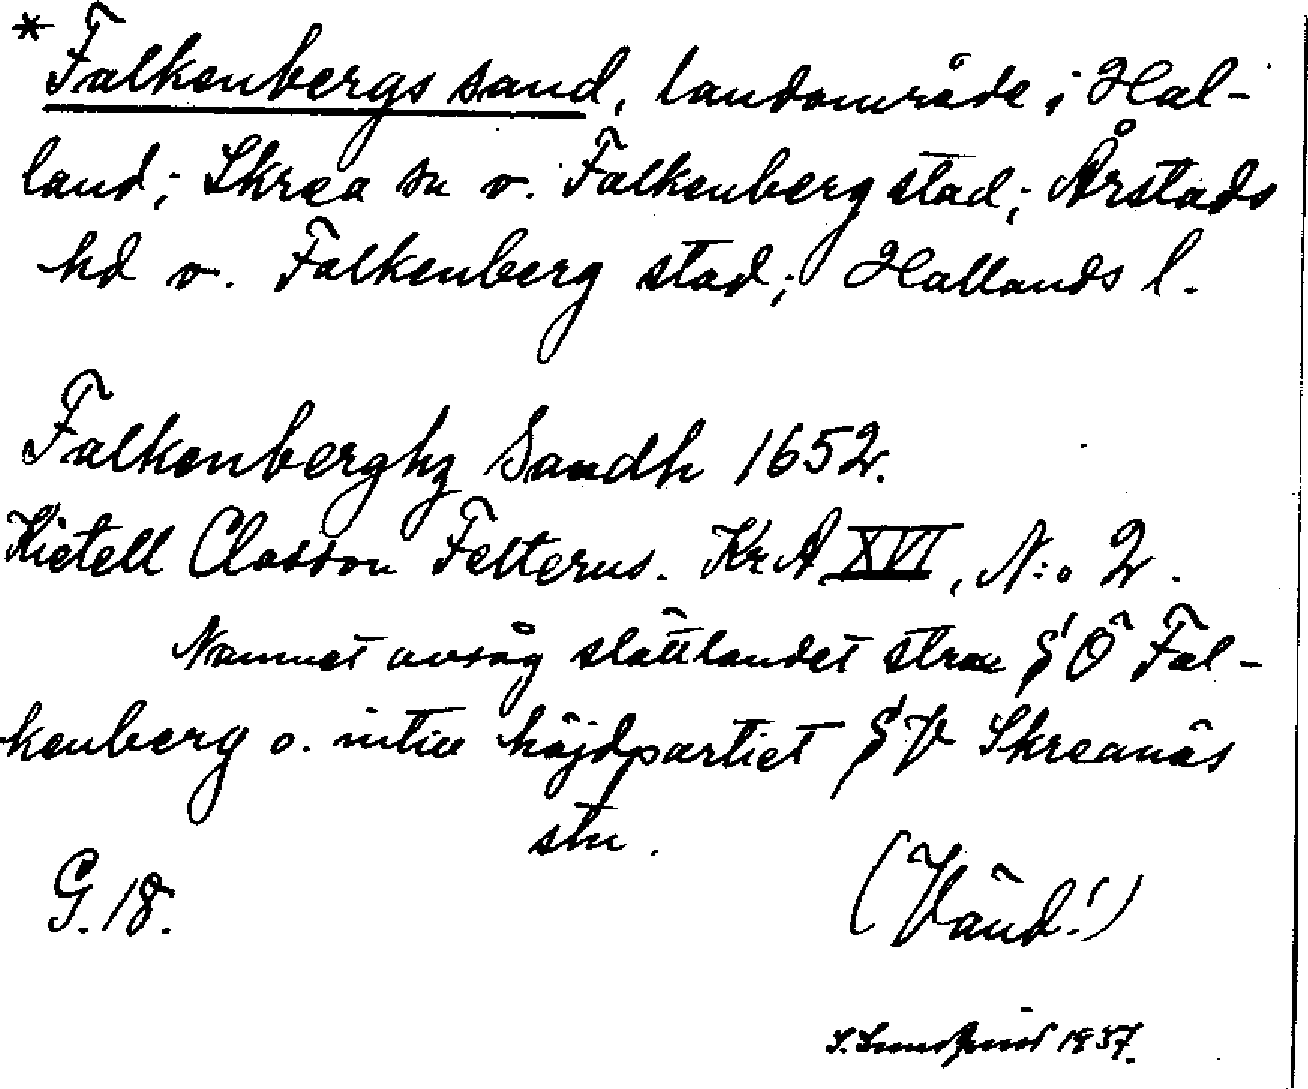 *Falkenbergs sand, landområde i Hal-
land; Skrea sn o. Falkenberg stad; Årstads
hd o. Falkenberg stad; Hallands l.
Falkenberghz Sandh 1652.
Kietell Classon Felterus. KrA XVI, N:o 2.
Namnet avsåg slättlandet strax § Ö Fal-
kenberg o. intill höjdpartiet § V Skreanäs
stn.
G. 18.
(Vänd!)
S. Lundquist 1937.